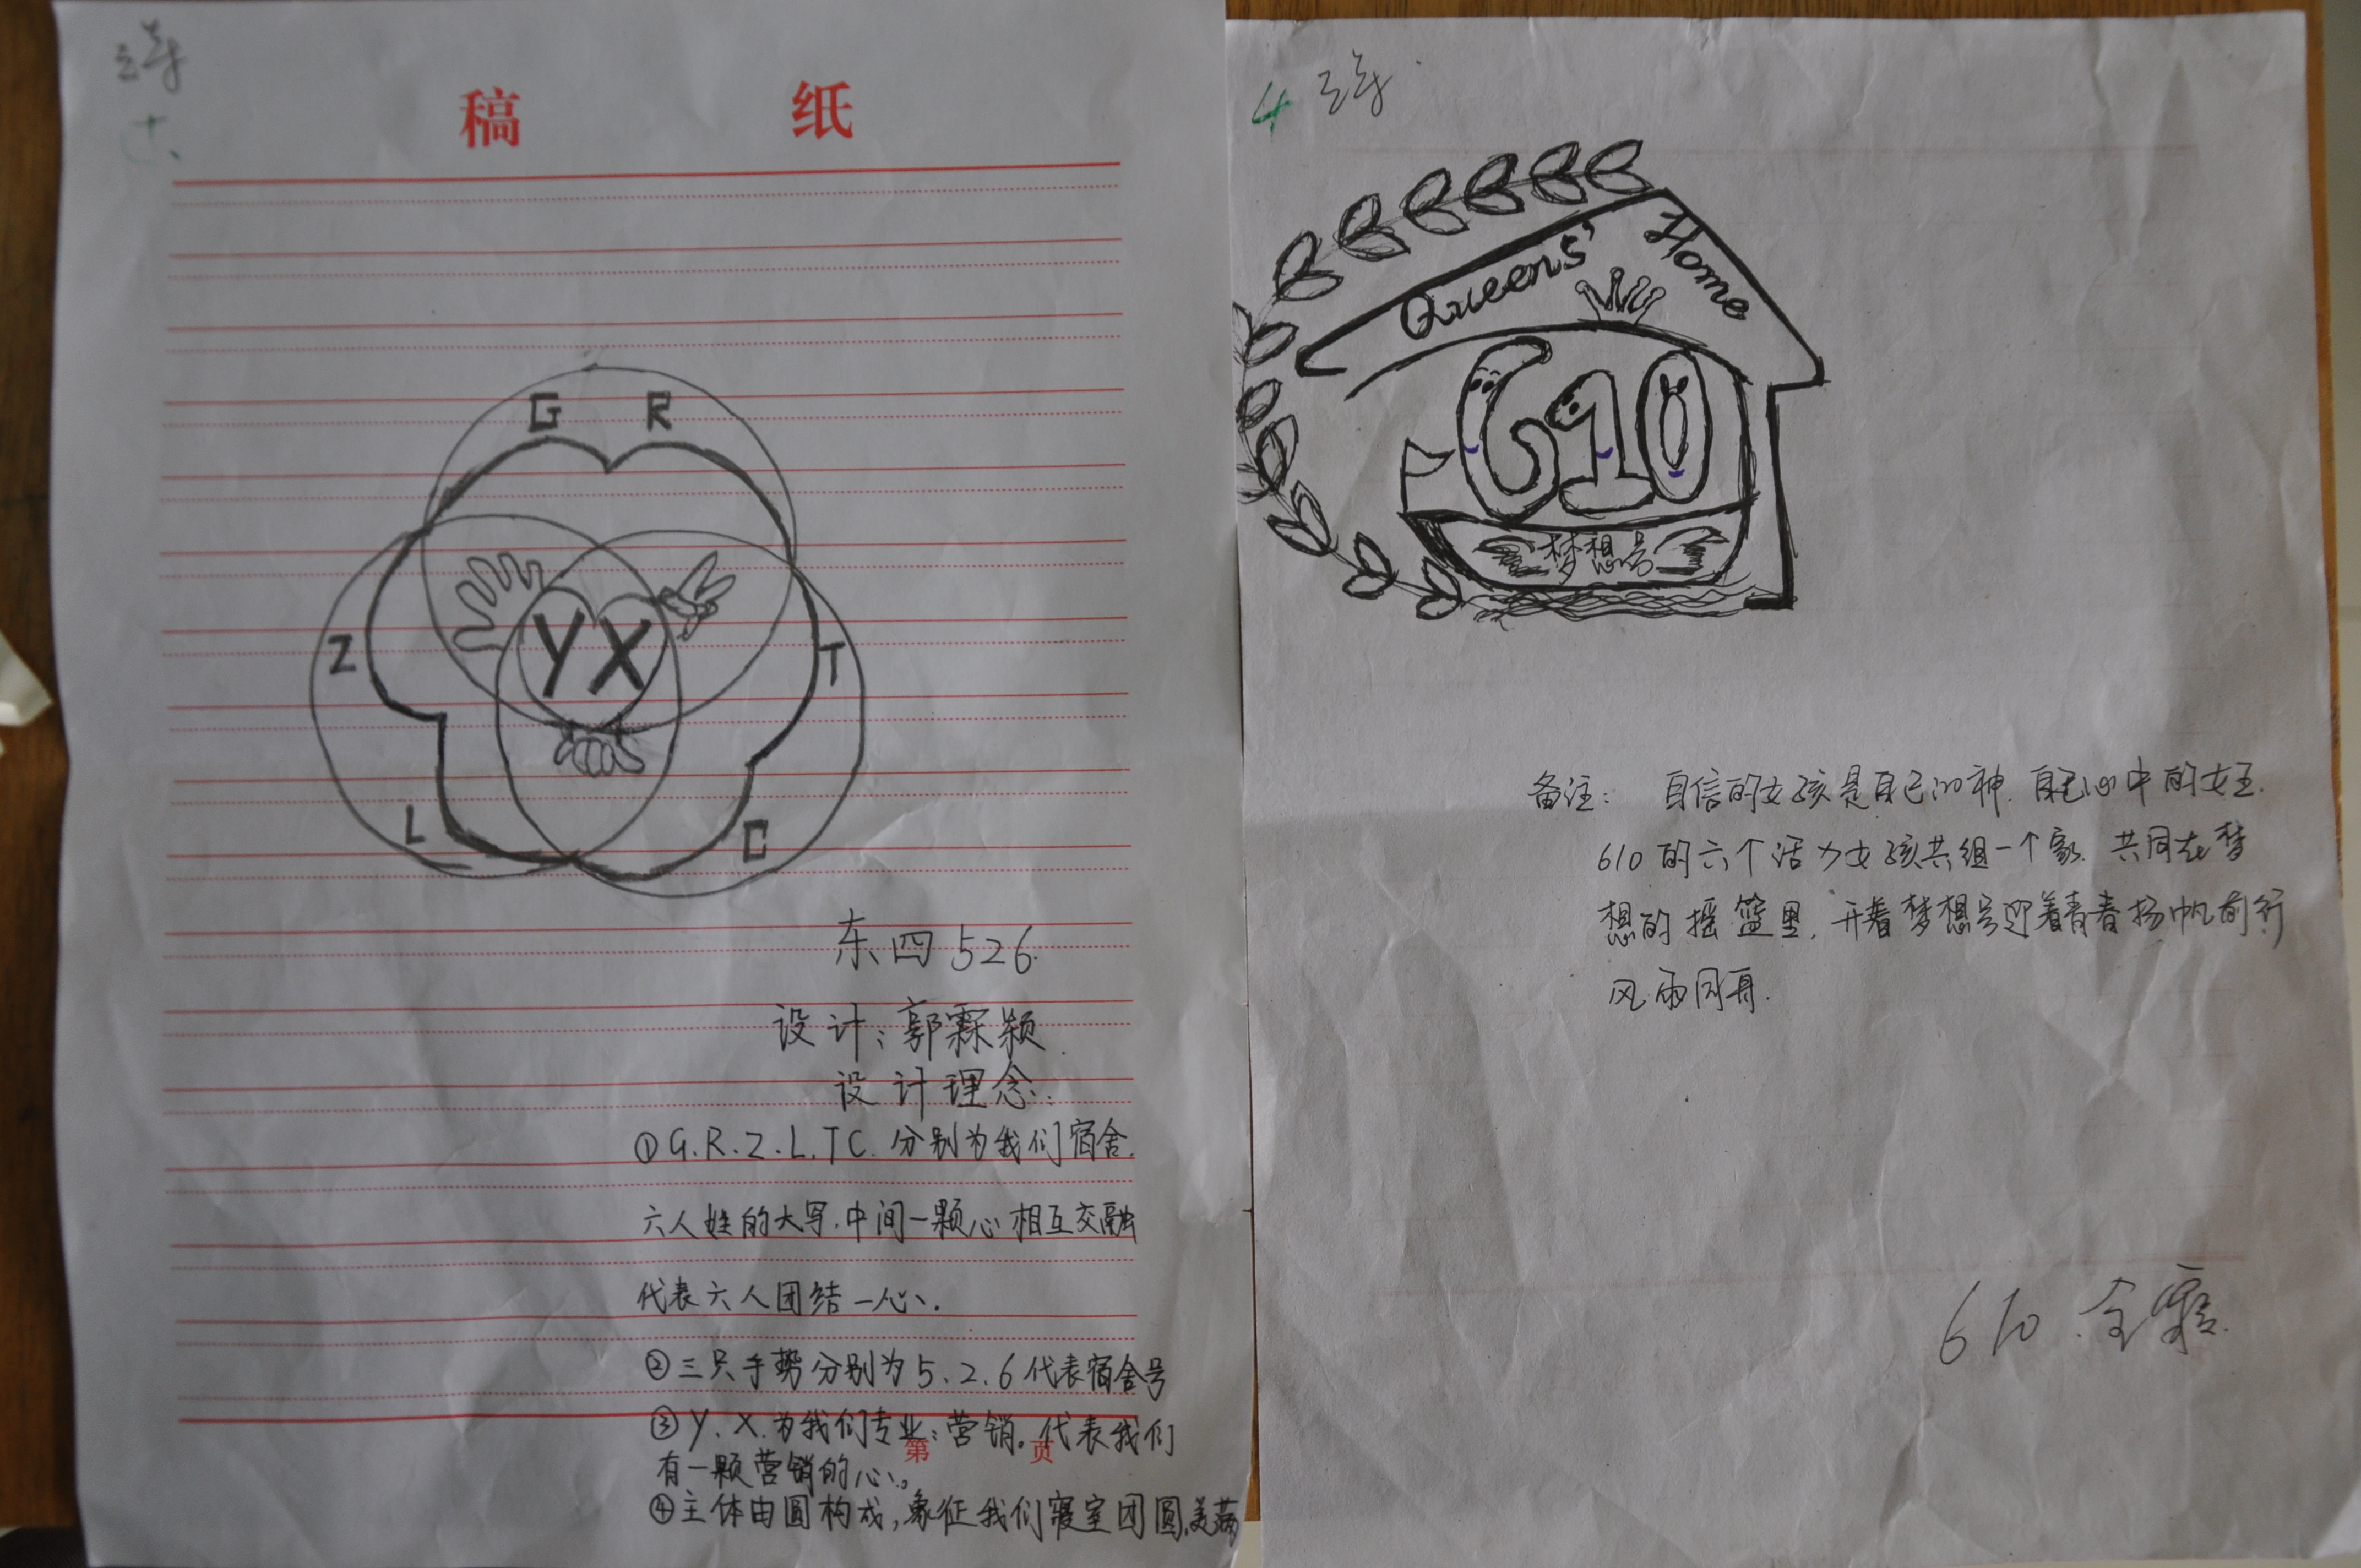 稿 纸
G R
Z
YX
T
L
C
东四526
设计:郭霖颖
设计理念:
①G.R.Z.L.T C.分别为我们宿舍.
六人姓的大写.中间一颗心相互交融
代表六人团结一心.
②三只手势分别为5.2.6代表宿舍号
③Y.X.为我们专业:营销。代表我们
有一颗营销的心。
第 页
④主体由圆构成,象征我们寝室团圆,美满
4
Queens' Home
610
梦想号
备注: 自信的女孩是自己的神.自己心中的女王.
610的六个活力女孩共组一个家.共同在梦
想的摇篮里,开着梦想号迎着青春扬帆前行
风雨同舟.
610 全寝.